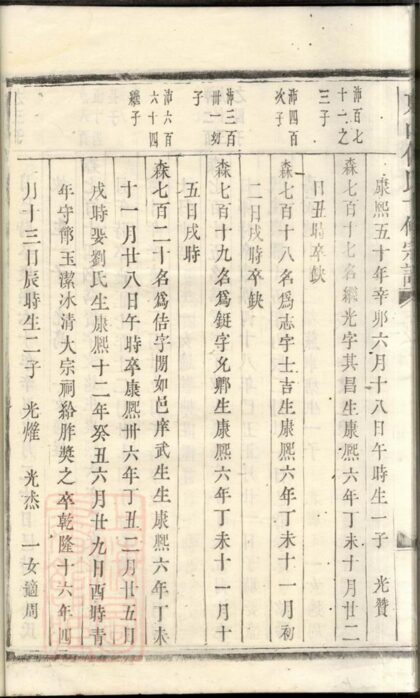 康熙五十年辛卯六月十八日午時生一子 光贊
沛百七十一之三子
森七百十七名繼光字其昌生康熙六年丁未十月廿二
日丑時卒缺
沛四百次子
森七百十八名爲志字士吉生康熙六年丁未十一月初
二日戌時卒缺
沛三百卅一幼子
森七百十九名爲鋌字允鄉生康熙六年丁未十一月十
五日戌時
沛六百六十四繼子
森七百二十名爲佶字閒如邑庠武生生康熙六年丁未
十一月廿八日午時卒康熙卅六年丁丑二月廿五月
戌時娶劉氏生康熙十二年癸丑六月廿九日酉時青
年守節玉潔冰清大宗祠給胙獎之卒乾隆十六年四
月十三日辰時生二子 光熣 光杰 一女適周